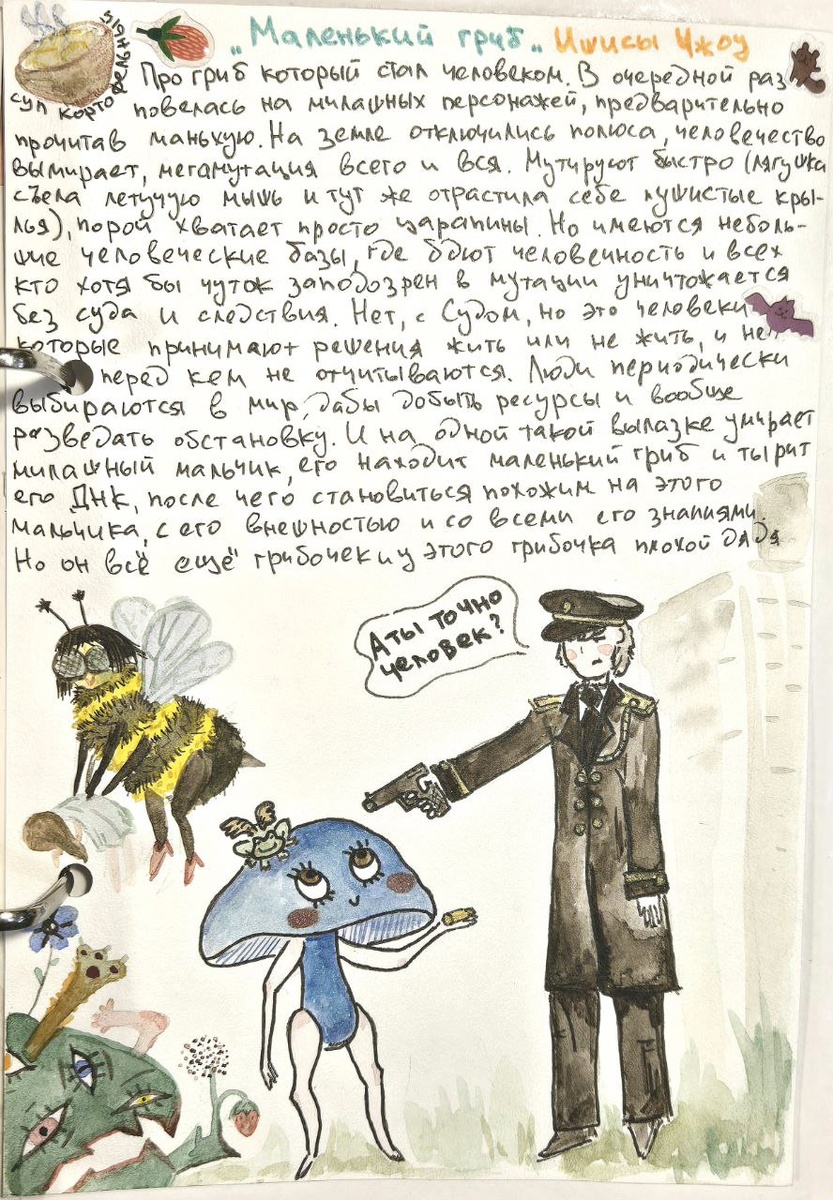 „Маленький гриб„ Ишисы Чжоу
суп картофельный
Про гриб который стал человеком. В очередной раз
повелась на милашных персонажей, предварительно
прочитав маньхую. На земле отключились полюса, человечество
вымирает, мегамутация всего и вся. Мутируют быстро (лягушка
съела летучую мышь и тут же отрастила себе пушистые кры-
лья), порой хватает просто царапины. Но имеются неболь-
шие человеческие базы, где бдют человечность и всех
кто хотя бы чуток заподозрен в мутации уничтожается
без суда и следствия. Нет, с Судом, но это человеки
которые принимают решения жить или не жить, и не
перед кем не отчитываются. Люди периодически
выбираются в мир, дабы добыть ресурсы и вообще
разведать обстановку. И на одной такой вылазке умирает
милашный мальчик, его находит маленький гриб и тырит
его ДНК, после чего становиться похожим на этого
мальчика, с его внешностью и со всеми его знаниями.
Но он всё "ещё" грибочек и у этого грибочка плохой дядя
А ты точно
человек?